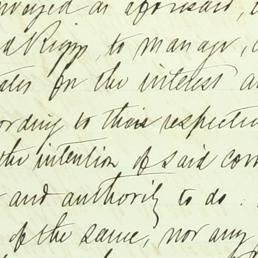 nveyed as aforesaid,
d Riggs, to manage,
ates for the interest a
ording to their respecti
the intention of said con
and authority to do
of the same, nor any